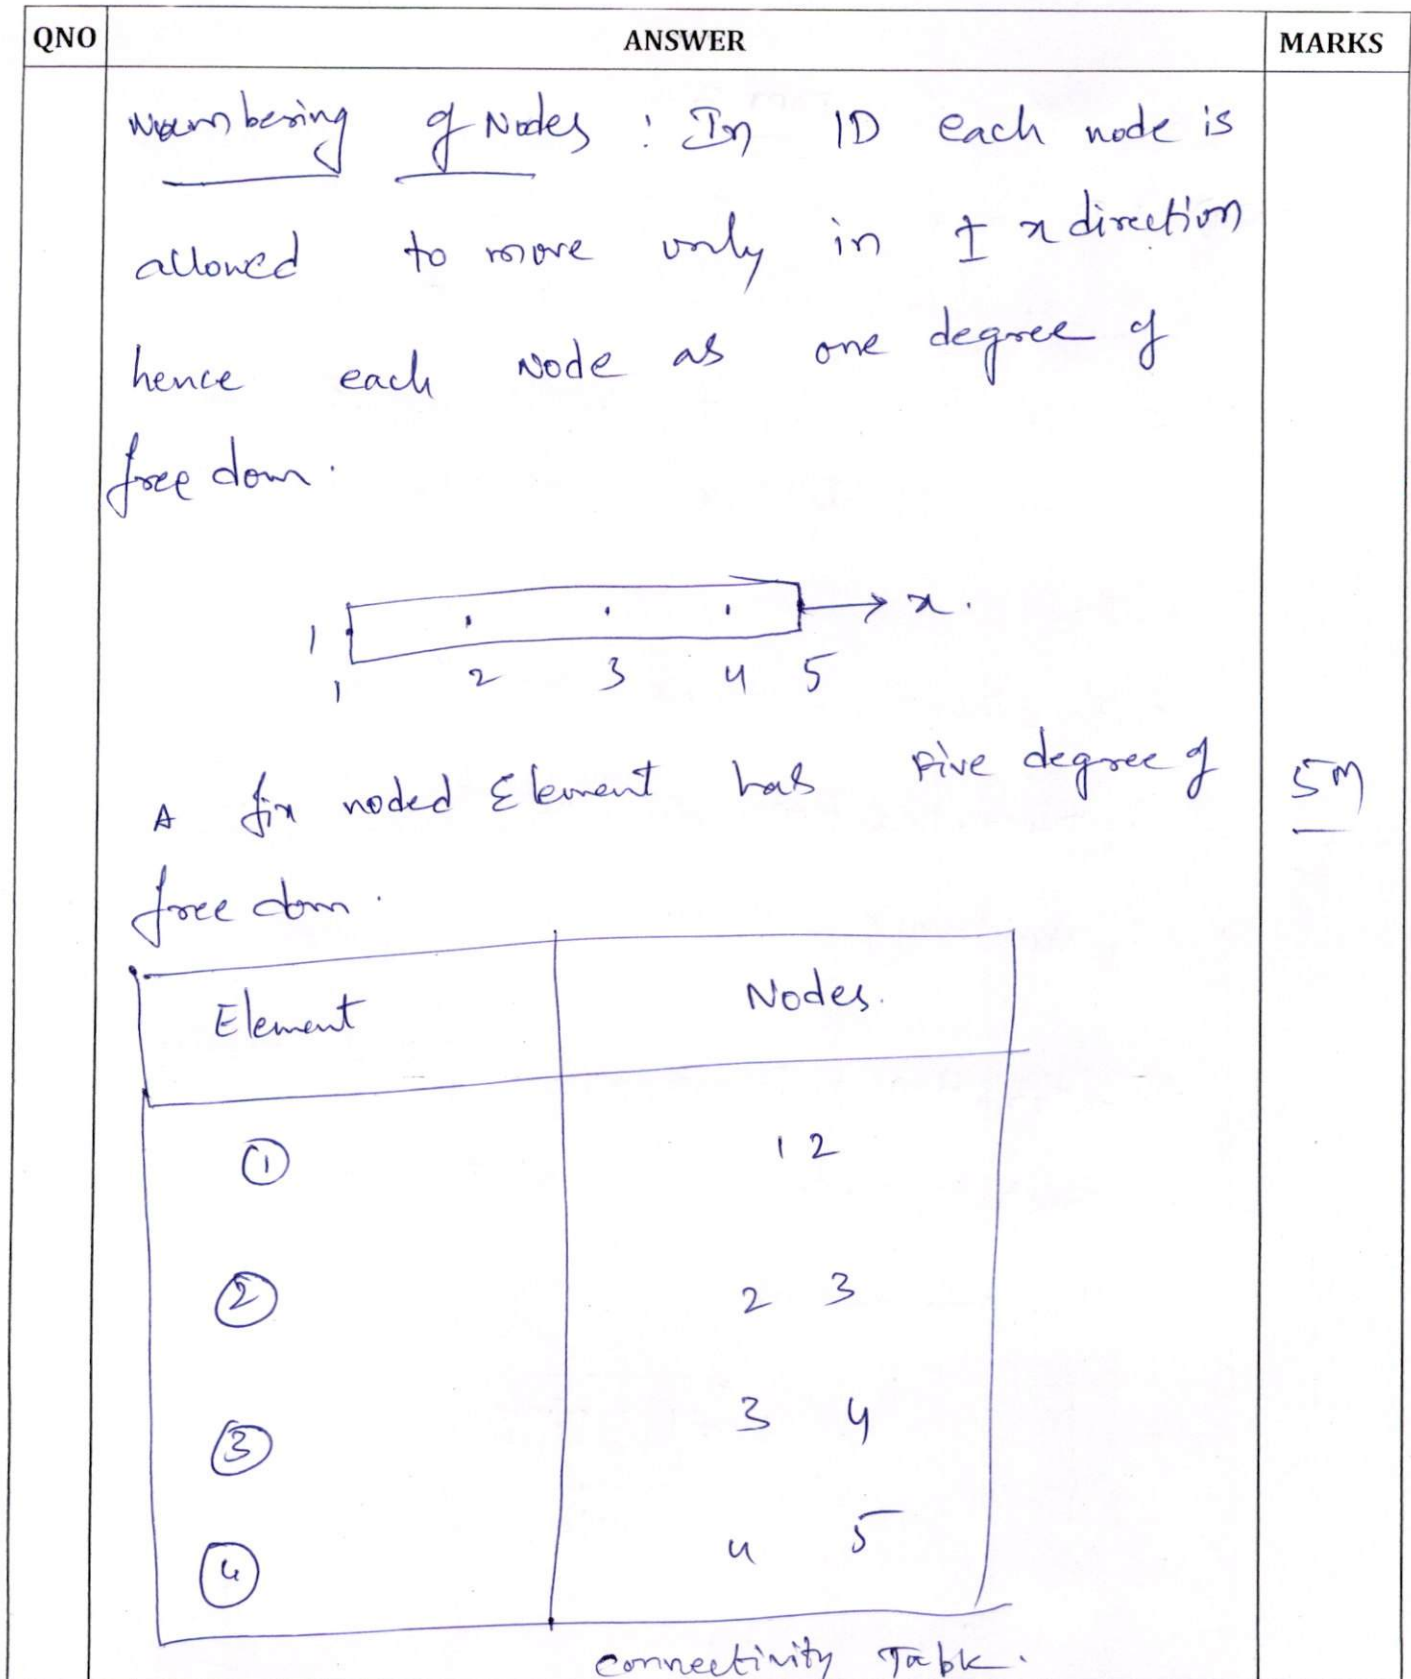 QNO ANSWER MARKS
Numbering of Nodes : In 1D each node is
allowed to move only in ± x direction
hence each Node as one degree of
free dom.
1 → x.
1 2 3 4 5
A fix noded Element has Five degree of 5M
free dom.
Element Nodes.
1 1 2
2 2 3
3 3 4
4 4 5
connectivity Table.